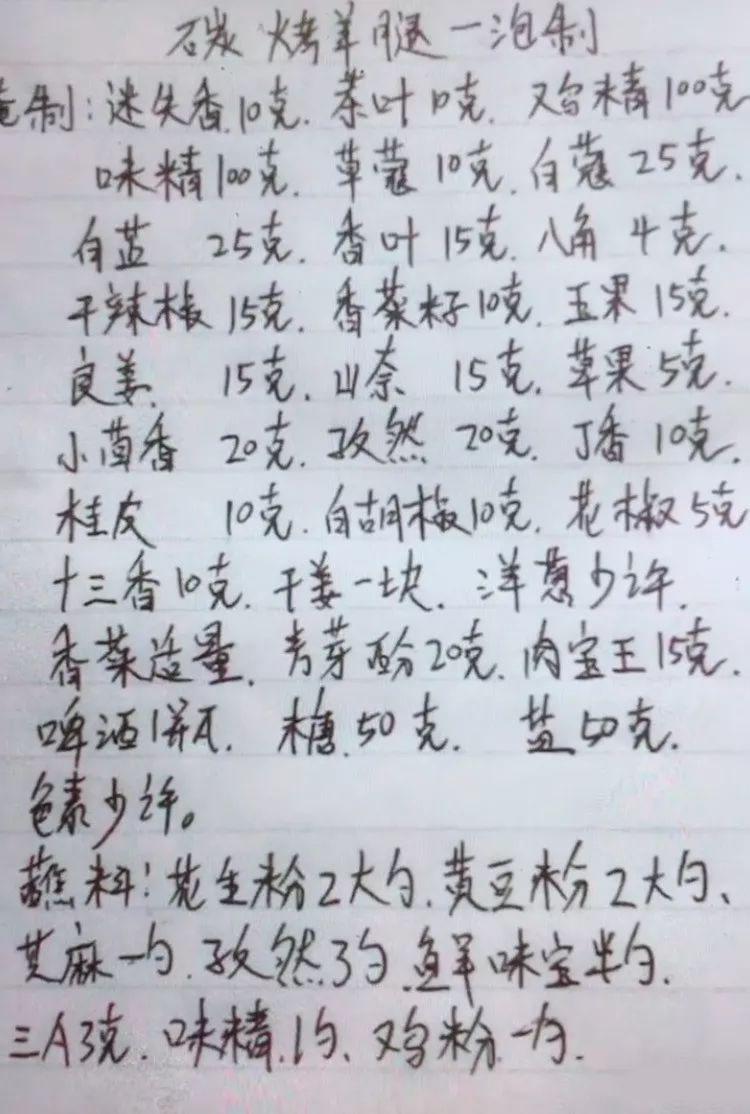 碳烤羊腿一泡制
腌制:迷失香10克.茶叶10克.鸡精100克
味精100克.草蔻10克.白蔻25克.
白蓝 25克.香叶15克.八角4克.
干辣椒15克.香菜籽10克.玉果15克.
良姜 15克.山奈 15克.草果5克.
小茴香 20克.孜然 20克.丁香10克.
桂皮 10克.白胡椒10克.花椒5克
十三香10克.干姜一块.洋葱少许.
香菜适量.青芽酚20克.肉宝王15克.
啤酒1瓶.糖50克. 盐50克.
色素少许。
蘸料:花生粉2大勺.黄豆粉2大勺、
芝麻一勺.孜然3勺.鲜味宝半勺.
三A3克.味精.1勺、鸡粉一勺.